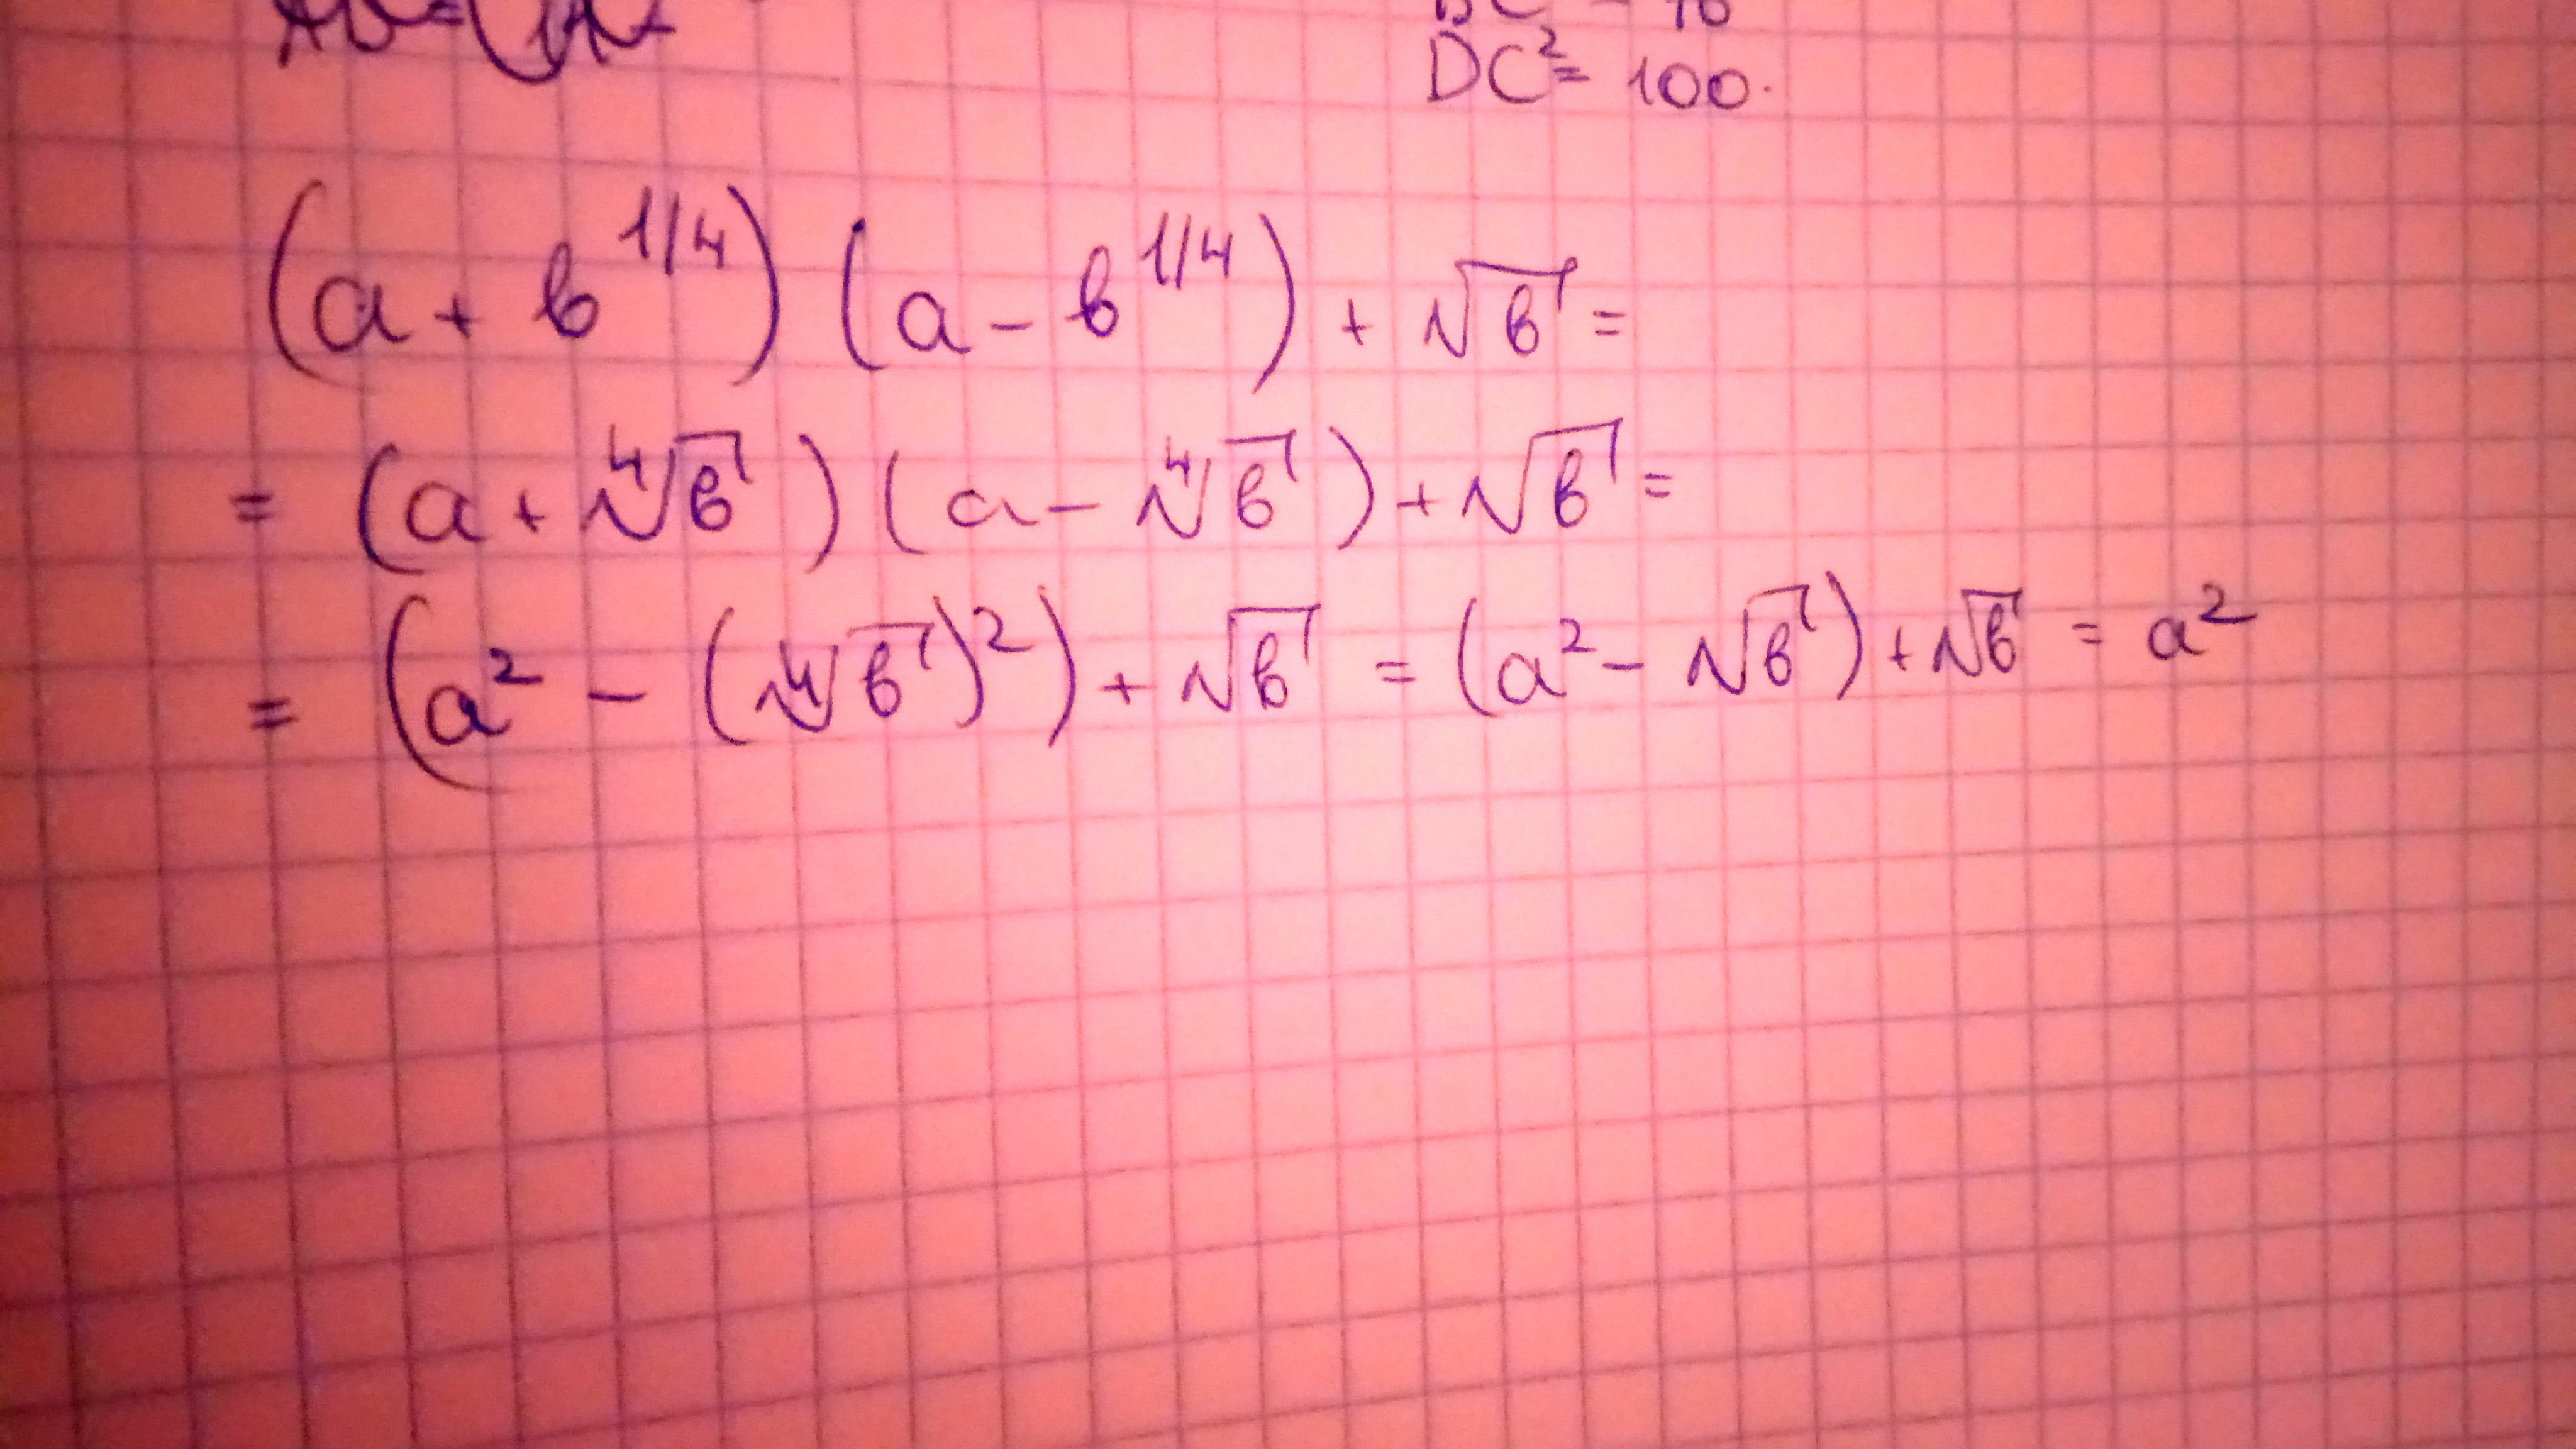 DC² = 100.
(a + b^1/4) (a - b^1/4) + √b =
= (a + ⁴√b) (a - ⁴√b) + √b =
= (a² - (⁴√b)²) + √b = (a² - √b) + √b = a²